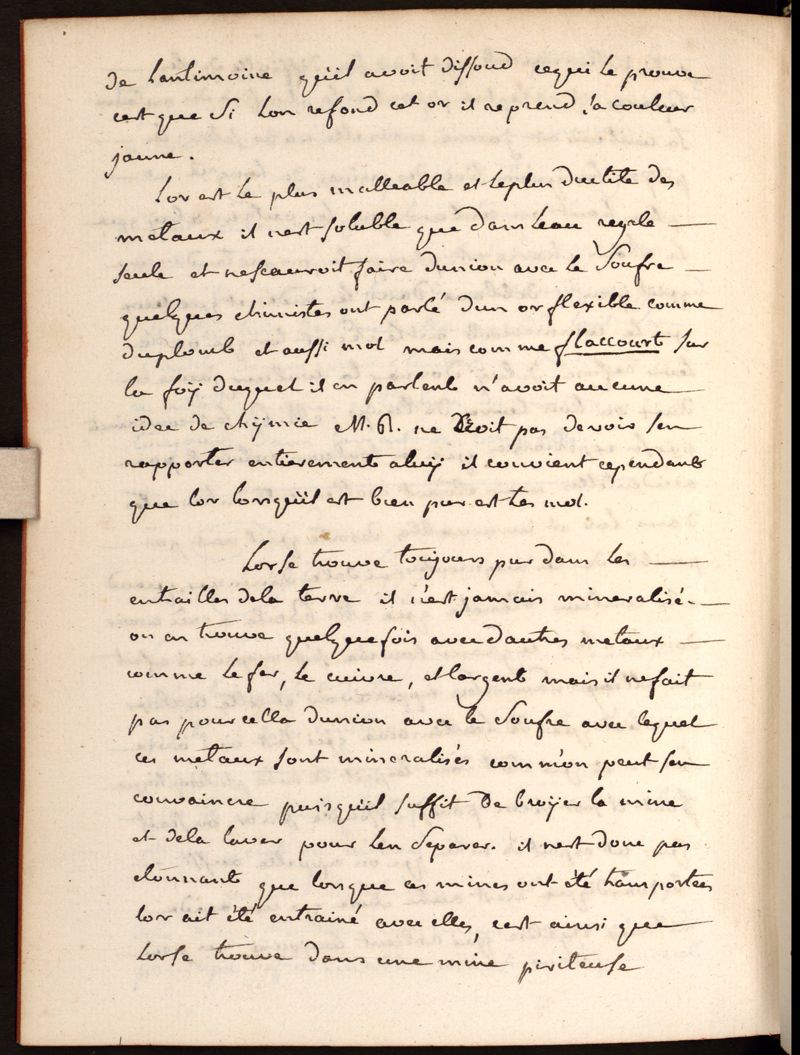 de lantimoine qu'il avoit dissoud cequi le prouve
cest que Si Lon refond cet or il reprend sa couleur
jaune.
Lor est le plus malleable et leplus ductile des
metaux il nest soluble que dans leau regale —
seule et nescauroit faire dunion avec le Soufre —
quelques chimistes ont parlé dun or flexible comme
duplomb et aussi mol mais comme flaccourt sur
la foÿ duquel il en parlent n'avoit aucune
idee de chÿmie M. R. ne Croit pas devoir sen
rapporter entierement aluÿ il convient cependant
que lor lorsquïl est bien pur est tres mol.
Lorse trouve toujours pur dans les —
entrailles dela terre il n'est jamais mineralisé. —
on en trouve quelquefois avec dautres metaux —
comme le fer, le cuivre, et largent mais il nefait
pas pour cella dunion avec le Soufre avec lequel
ces metaux sont mineralisés comm'on peut sen
convaincre puisquïl suffit de broÿer la mine
et dela laver pour len Separer. il nest donc pas
etonnant que lorsque ces mines ont été transportées
lor ait été entrainé avec elles, cest ainsi que
Lorse trouve dans une mine piriteuse